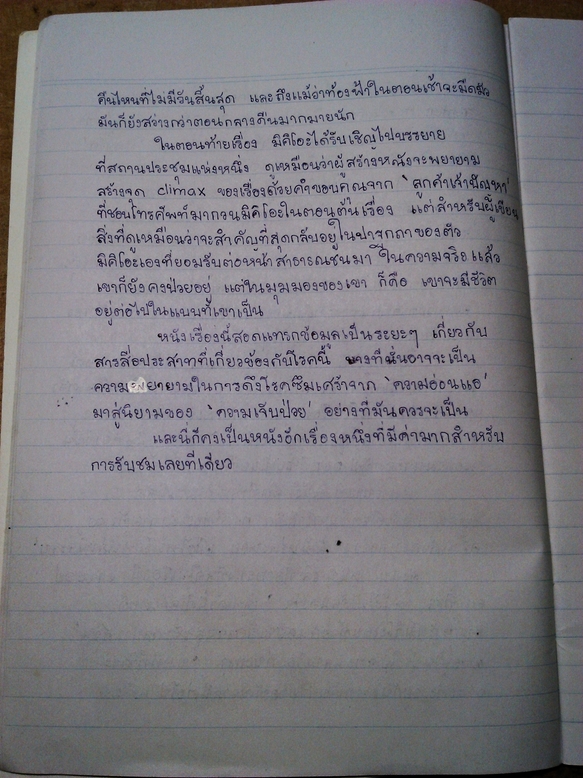 คืนไหนที่ไม่มีวันสิ้นสุด และถึงแม้ว่าท้องฟ้าในตอนเช้าจะมืดมัว
มันก็ยังสว่างกว่าตอนกลางคืนมากมายนัก
ในตอนท้ายเรื่อง มิคิโอะได้รับเชิญไปบรรยาย
ที่สถานประชุมแห่งหนึ่ง ดูเหมือนว่าผู้สร้างหนังจะพยายาม
สร้างจุด climax ของเรื่องด้วยคำขอบคุณจาก 'ลูกค้าเจ้าปัญหา'
ที่ชอบโทรศัพท์มากวนมิคิโอะในตอนต้นเรื่อง แต่สำหรับผู้เขียน
สิ่งที่ดูเหมือนว่าจะสำคัญที่สุดกลับอยู่ในปาฐกถาของตัว
มิคิโอะเองที่ยอมรับต่อหน้าสาธารณชนมา ในความจริงแล้ว
เขาก็ยังคงป่วยอยู่ แต่ในมุมมองของเขา ก็คือ เขาจะมีชีวิต
อยู่ต่อไปในแบบที่เขาเป็น
หนังเรื่องนี้สอดแทรกข้อมูลเป็นระยะๆ เกี่ยวกับ
สารสื่อประสาทที่เกี่ยวข้องกับโรคนี้ บางทีมันอาจจะเป็น
ความพยายามในการดึงโรคซึมเศร้าจาก 'ความอ่อนแอ'
มาสู่นิยามของ 'ความเจ็บป่วย' อย่างที่มันควรจะเป็น
และนี่ก็คงเป็นหนังอีกเรื่องหนึ่งที่มีค่ามากสำหรับ
การรับชมเลยทีเดียว